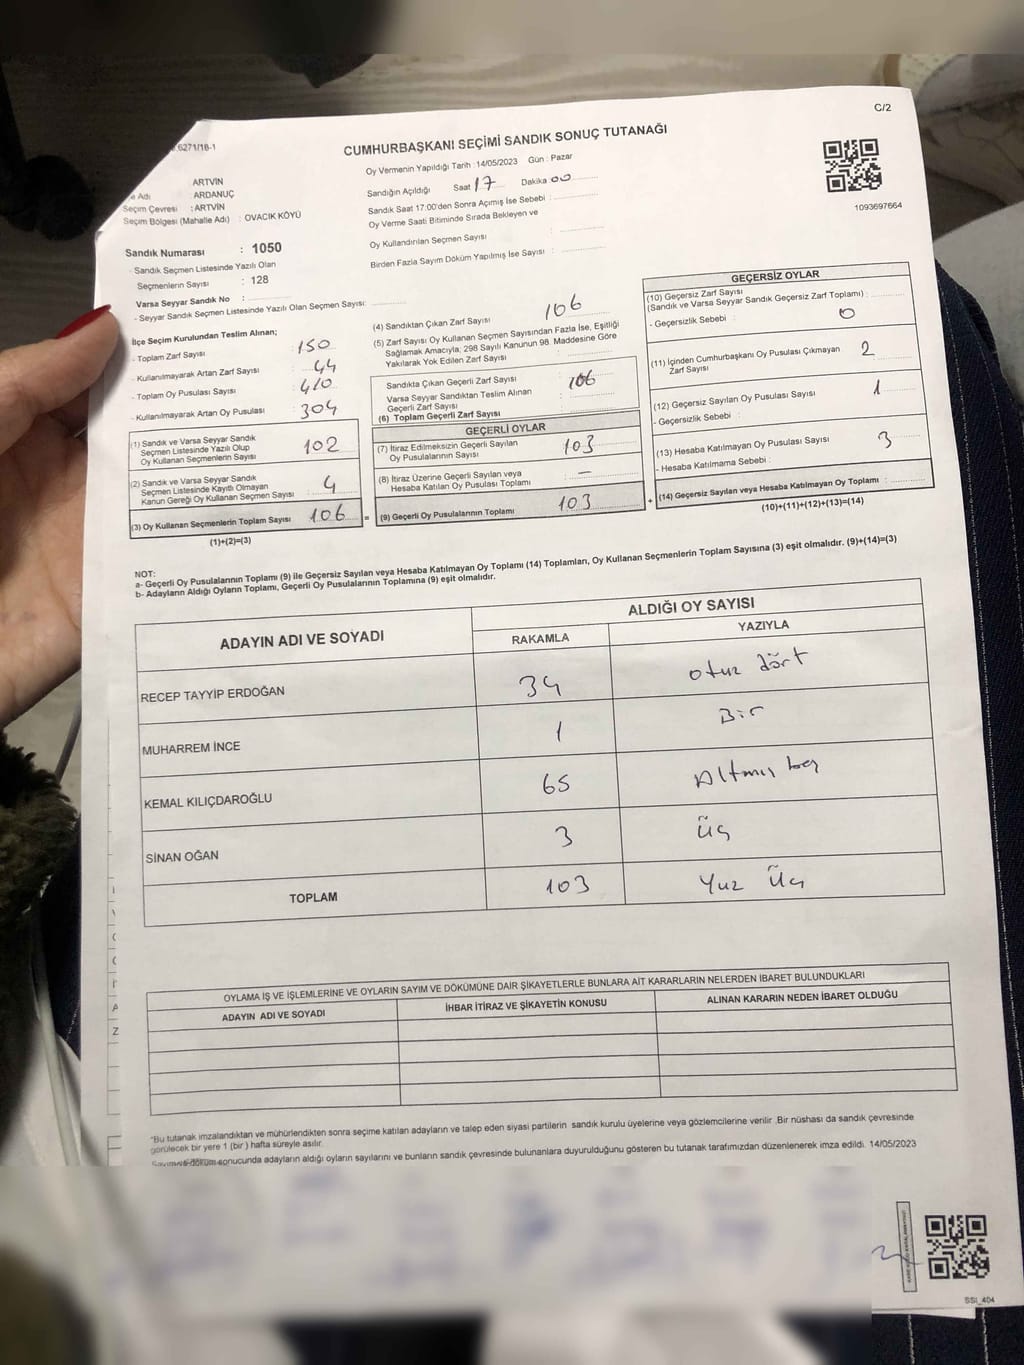 C/2
6271/18-1
CUMHURBAŞKANI SEÇİMİ SANDIK SONUÇ TUTANAĞI
Oy Vermenin Yapıldığı Tarih : 14/05/2023 Gün : Pazar
Sandığın Açıldığı Saat 17 Dakika 00
Sandık Saat 17:00'den Sonra Açımış İse Sebebi :
Oy Verme Saati Bitiminde Sırada Bekleyen ve
Oy Kullandırılan Seçmen Sayısı :
Birden Fazla Sayım Döküm Yapılmış İse Sayısı :
1093697664
ARTVİN
Adı : ARDANUÇ
Seçim Çevresi : ARTVİN
Seçim Bölgesi (Mahalle Adı) : OVACIK KÖYÜ
Sandık Numarası : 1050
- Sandık Seçmen Listesinde Yazılı Olan
Seçmenlerin Sayısı : 128
Varsa Seyyar Sandık No :
- Seyyar Sandık Seçmen Listesinde Yazılı Olan Seçmen Sayısı:
İlçe Seçim Kurulundan Teslim Alınan;
- Toplam Zarf Sayısı : 150
- Kullanılmayarak Artan Zarf Sayısı : 44
- Toplam Oy Pusulası Sayısı : 410
- Kullanılmayarak Artan Oy Pusulası : 304
(1) Sandık ve Varsa Seyyar Sandık
Seçmen Listesinde Yazılı Olup
Oy Kullanan Seçmenlerin Sayısı : 102
(2) Sandık ve Varsa Seyyar Sandık
Seçmen Listesinde Kayıtlı Olmayan
Kanun Gereği Oy Kullanan Seçmen Sayısı : 4
(3) Oy Kullanan Seçmenlerin Toplam Sayısı : 106
(1)+(2)=(3)
(4) Sandıktan Çıkan Zarf Sayısı : 106
(5) Zarf Sayısı Oy Kullanan Seçmen Sayısından Fazla İse, Eşitliği
Sağlamak Amacıyla; 298 Sayılı Kanunun 98. Maddesine Göre
Yakılarak Yok Edilen Zarf Sayısı :
Sandıkta Çıkan Geçerli Zarf Sayısı : 106
Varsa Seyyar Sandıktan Teslim Alınan
Geçerli Zarf Sayısı :
(6) Toplam Geçerli Zarf Sayısı :
=
GEÇERLİ OYLAR
(7) İtiraz Edilmeksizin Geçerli Sayılan
Oy Pusulalarının Sayısı : 103
(8) İtiraz Üzerine Geçerli Sayılan veya
Hesaba Katılan Oy Pusulası Toplamı : -
(9) Geçerli Oy Pusulalarının Toplamı : 103
+
GEÇERSİZ OYLAR
(10) Geçersiz Zarf Sayısı
(Sandık ve Varsa Seyyar Sandık Geçersiz Zarf Toplamı) :
- Geçersizlik Sebebi : 0
(11) İçinden Cumhurbaşkanı Oy Pusulası Çıkmayan
Zarf Sayısı : 2
(12) Geçersiz Sayılan Oy Pusulası Sayısı : 1
- Geçersizlik Sebebi :
(13) Hesaba Katılmayan Oy Pusulası Sayısı : 3
- Hesaba Katılmama Sebebi :
(14) Geçersiz Sayılan veya Hesaba Katılmayan Oy Toplamı :
(10)+(11)+(12)+(13)=(14)
NOT:
a- Geçerli Oy Pusulalarının Toplamı (9) ile Geçersiz Sayılan veya Hesaba Katılmayan Oy Toplamı (14) Toplamları, Oy Kullanan Seçmenlerin Toplam Sayısına (3) eşit olmalıdır. (9)+(14)=(3)
b- Adayların Aldığı Oyların Toplamı, Geçerli Oy Pusulalarının Toplamına (9) eşit olmalıdır.
ADAYIN ADI VE SOYADI
ALDIĞI OY SAYISI
RAKAMLA YAZIYLA
RECEP TAYYİP ERDOĞAN 34 otuz dört
MUHARREM İNCE 1 Bir
KEMAL KILIÇDAROĞLU 65 Altmış beş
SİNAN OĞAN 3 Üç
TOPLAM 103 Yuz Üç
OYLAMA İŞ VE İŞLEMLERİNE VE OYLARIN SAYIM VE DÖKÜMÜNE DAİR ŞİKAYETLERLE BUNLARA AİT KARARLARIN NELERDEN İBARET BULUNDUKLARI
ADAYIN ADI VE SOYADI İHBAR İTİRAZ VE ŞİKAYETİN KONUSU ALINAN KARARIN NEDEN İBARET OLDUĞU
*Bu tutanak imzalandıktan ve mühürlendikten sonra seçime katılan adayların ve talep eden siyasi partilerin sandık kurulu üyelerine veya gözlemcilerine verilir .Bir nüshası da sandık çevresinde
görülecek bir yere 1 (bir ) hafta süreyle asılır.
Sayım ve döküm sonucunda adayların aldığı oyların sayılarını ve bunların sandık çevresinde bulunanlara duyurulduğunu gösteren bu tutanak tarafımızdan düzenlenerek imza edildi. 14/05/2023
SSI_404